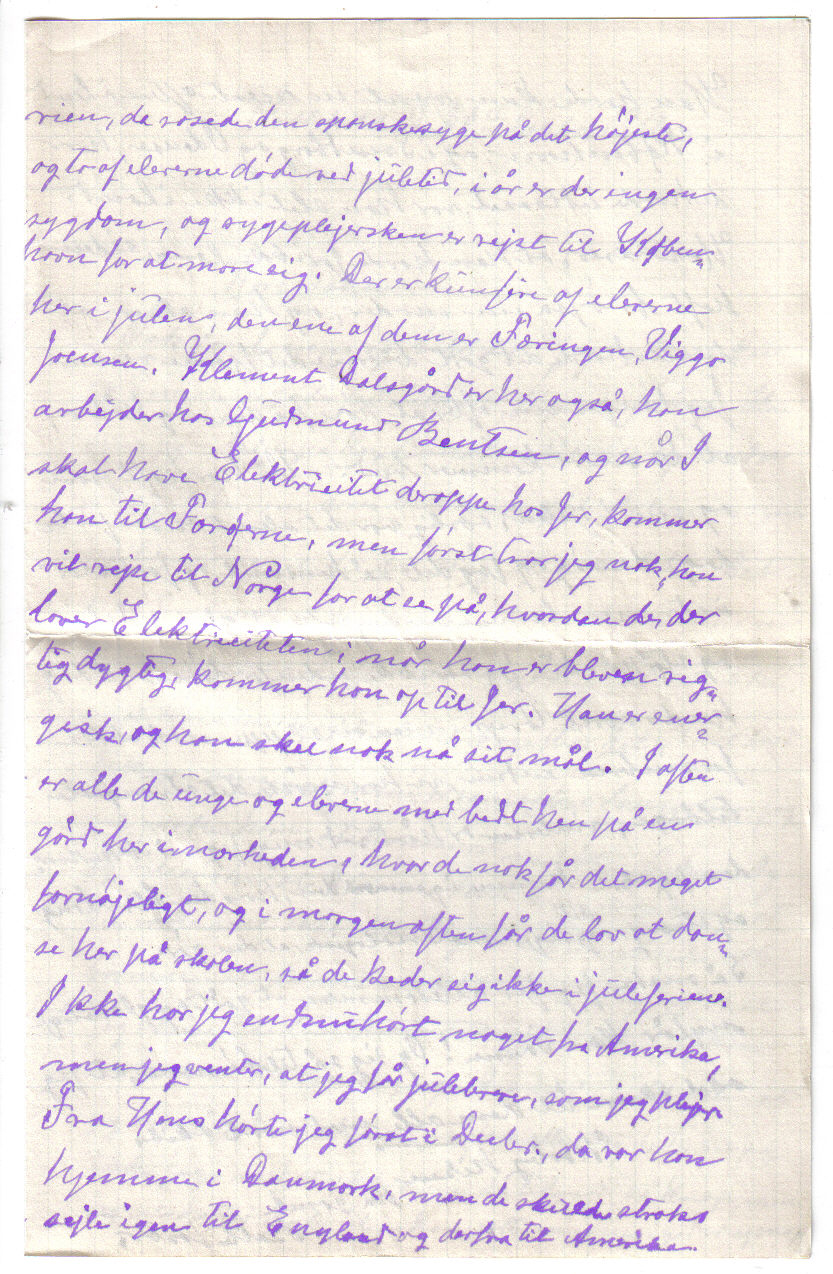 rien, da rasede den spanske syge på det højeste,
og to af eleverne døde ved juletid, i år er der ingen
sygdom, og sygeplejersken er rejst til Køben„
havn for at more sig. Der er kun fire af eleverne
her i julen, den ene af dem er Færingen, Viggo
Joensen. Klement Dalsgård er her også, han
arbejder hos Gudmund Bentsen, og når I
skal have Elektricitet deroppe hos Jer, kommer
han til Færøerne, men først tror jeg nok, han
vil rejse til Norge for at se på, hvordan de der
laver Elektriciteten; når han er bleven rig„
tig dygtig, kommer han op til Jer. Han er ener„
gisk, og han skal nok nå sit mål. I aften
er alle de unge og eleverne med bedt hen på en
gård her i nærheden, hvor de nok får det meget
fornøjeligt, og i morgen aften får de lov at dan„
se her på skolen, så de keder sig ikke i juleferien.
Ikke har jeg endnu hørt noget fra Amerika,
men jeg venter, at jeg får julebreve, som jeg plejer.
Fra Hans hørte jeg først i Decbr., da var han
hjemme i Danmark, men de skulde straks
sejle igen til England og derfra til Amerika.